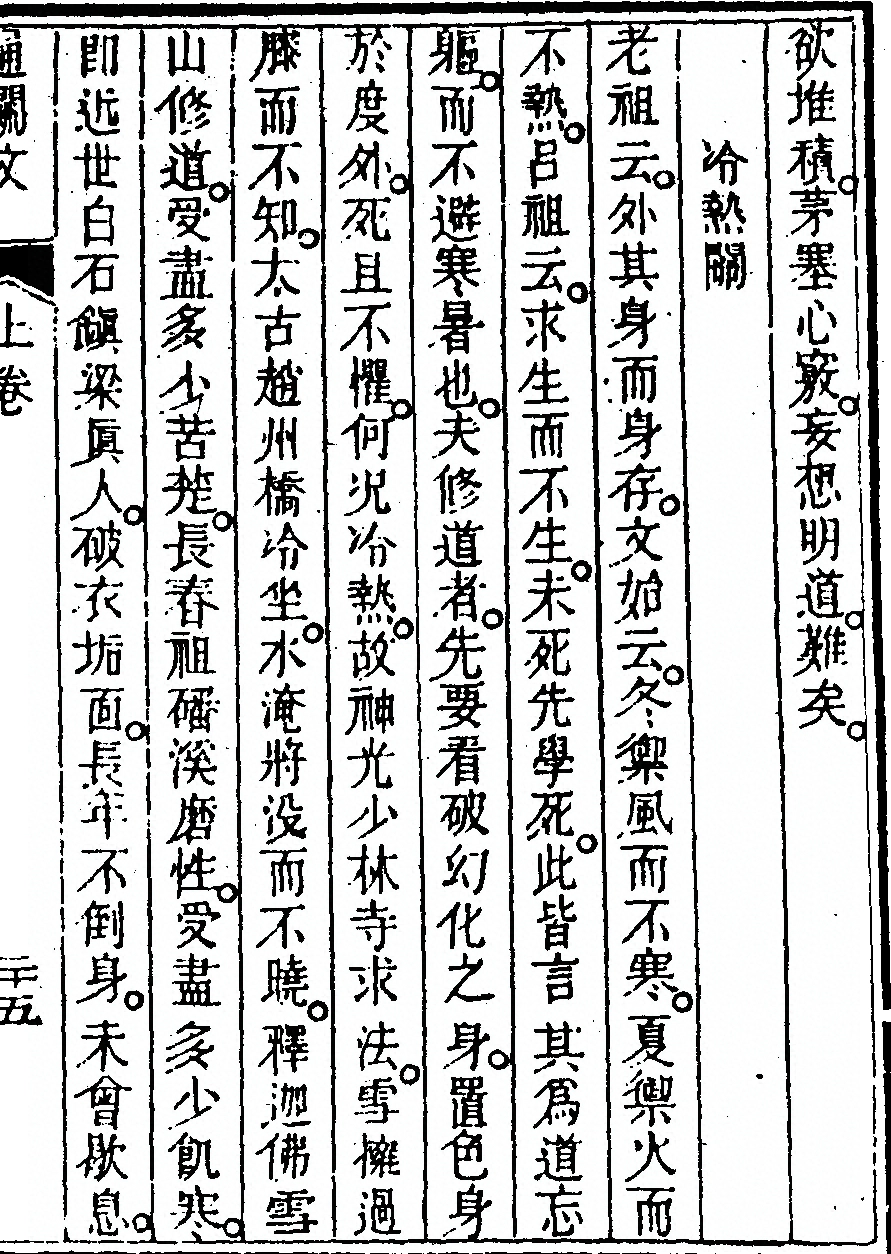 欲堆積。茅塞心竅。妄想明道。難矣。
冷熱關
老祖云。外其身而身存。文始云。冬禦風而不寒。夏禦火而
不熱。呂祖云。求生而不生。未死先學死。此皆言其爲道忘
軀。而不避寒暑也。夫修道者。先要看破幻化之身。置色身
於度外。死且不懼。何况冷熱。故神光少林寺求法。雪擁過
膝而不知。太古趙州橋冷坐。水淹將没而不曉。釋迦佛雪
山修道。受盡多少苦楚。長春祖磻溪磨性。受盡多少飢寒。
即近世白石鎭梁眞人。破衣垢面。長年不倒身。未曾歇息。
通關文 上卷 二十五